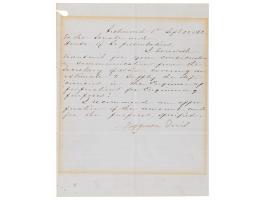 Richmond Va Sept
To the Senate and
House of Representatives,
I herewith
transmit for your consideration
a communication from the
Secretary of War covering an
estimate to supply the
in the Engineer
for Engineering
purposes.
I recommend an appro-
priation of the amount and
for the purpose specified.
Jefferson Davis